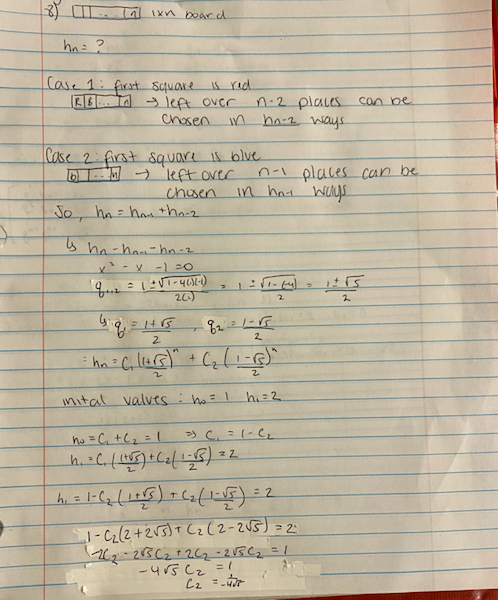 8) [ | |..|n] 1xn board
hn = ?
Case 1: first square is red
[R|B|...|n] → left over n-2 places can be
chosen in hn-2 ways
Case 2: first square is blue
[b| |...|n] → left over n-1 places can be
chosen in hn-1 ways
So, hn = hn-1 + hn-2
↳ hn - hn-1 - hn-2
x² - x - 1 = 0
q1,2 = 1 ± √1-4(1)(-1) / 2(1) = 1 ± √1-(-4) / 2 = 1 ± √5 / 2
↳ q1 = 1+√5 / 2 , q2 = 1-√5 / 2
= hn = C1 (1+√5 / 2)^n + C2 (1-√5 / 2)^n
inital values : h0 = 1 h1 = 2
h0 = C1 + C2 = 1 ⇒ C1 = 1 - C2
h1 = C1 (1+√5 / 2) + C2 (1-√5 / 2) = 2
h1 = 1 - C2 (1+√5 / 2) + C2 (1-√5 / 2) = 2
1 - C2 (2+2√5) + C2 (2-2√5) = 2
-2C2 - 2√5 C2 + 2C2 - 2√5 C2 = 1
-4√5 C2 = 1
C2 = 1 / -4√5